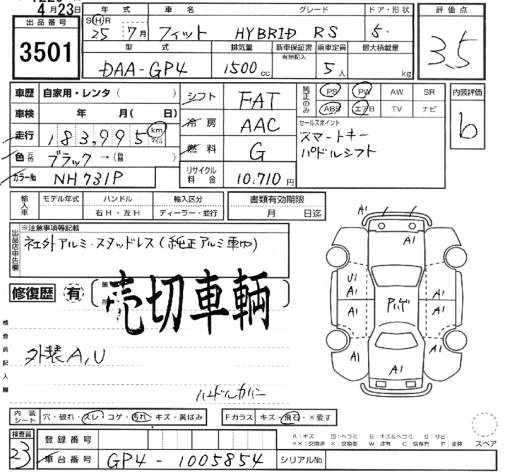 4月23日
出品番号 年式 車名 グレード ドア・形状 評価点
3501 S(H)R 25年 7月 フィット HYBRID RS 5. 3.5
型式 排気量 新車保証書 乗車定員 最大積載量
有無記入
DAA-GP4 1500cc 5人 kg
車歴 自家用・レンタ( ) シフト FAT 純正のみ PS PW AW SR 内装評価
車検 年 月( 日) 冷房 AAC ABS エアB TV ナビ b
走行 183,995 km マイル 燃料 G セールスポイント
スマートキー
パドルシフト
色 ブラック→( )
カラーNo NH731P リサイクル料金 10.710円
輸入車 モデル年式 ハンドル 輸入区分 書類有効期限
右H・左H ディーラー・並行 月 日迄
出品店申告欄 ※注意事項等記載
社外アルミ・スタッドレス(純正アルミ車内)
修復歴 有
売切車輌
検査員記入欄
外装A,U
ハンドルカバー
A1 A1
A1
U1
A1 A1
A1 A1
A1 A1
A1
内装シート 穴・破れ・スレ・コゲ・汚れ・キズ・黄ばみ Fガラス キズ・飛石・×要す
A:キズ U:ヘコミ B:キズ&ヘコミ S:サビ
スペア
検査員 登録番号
23 車台番号 GP4-1005854 シリアルNo.